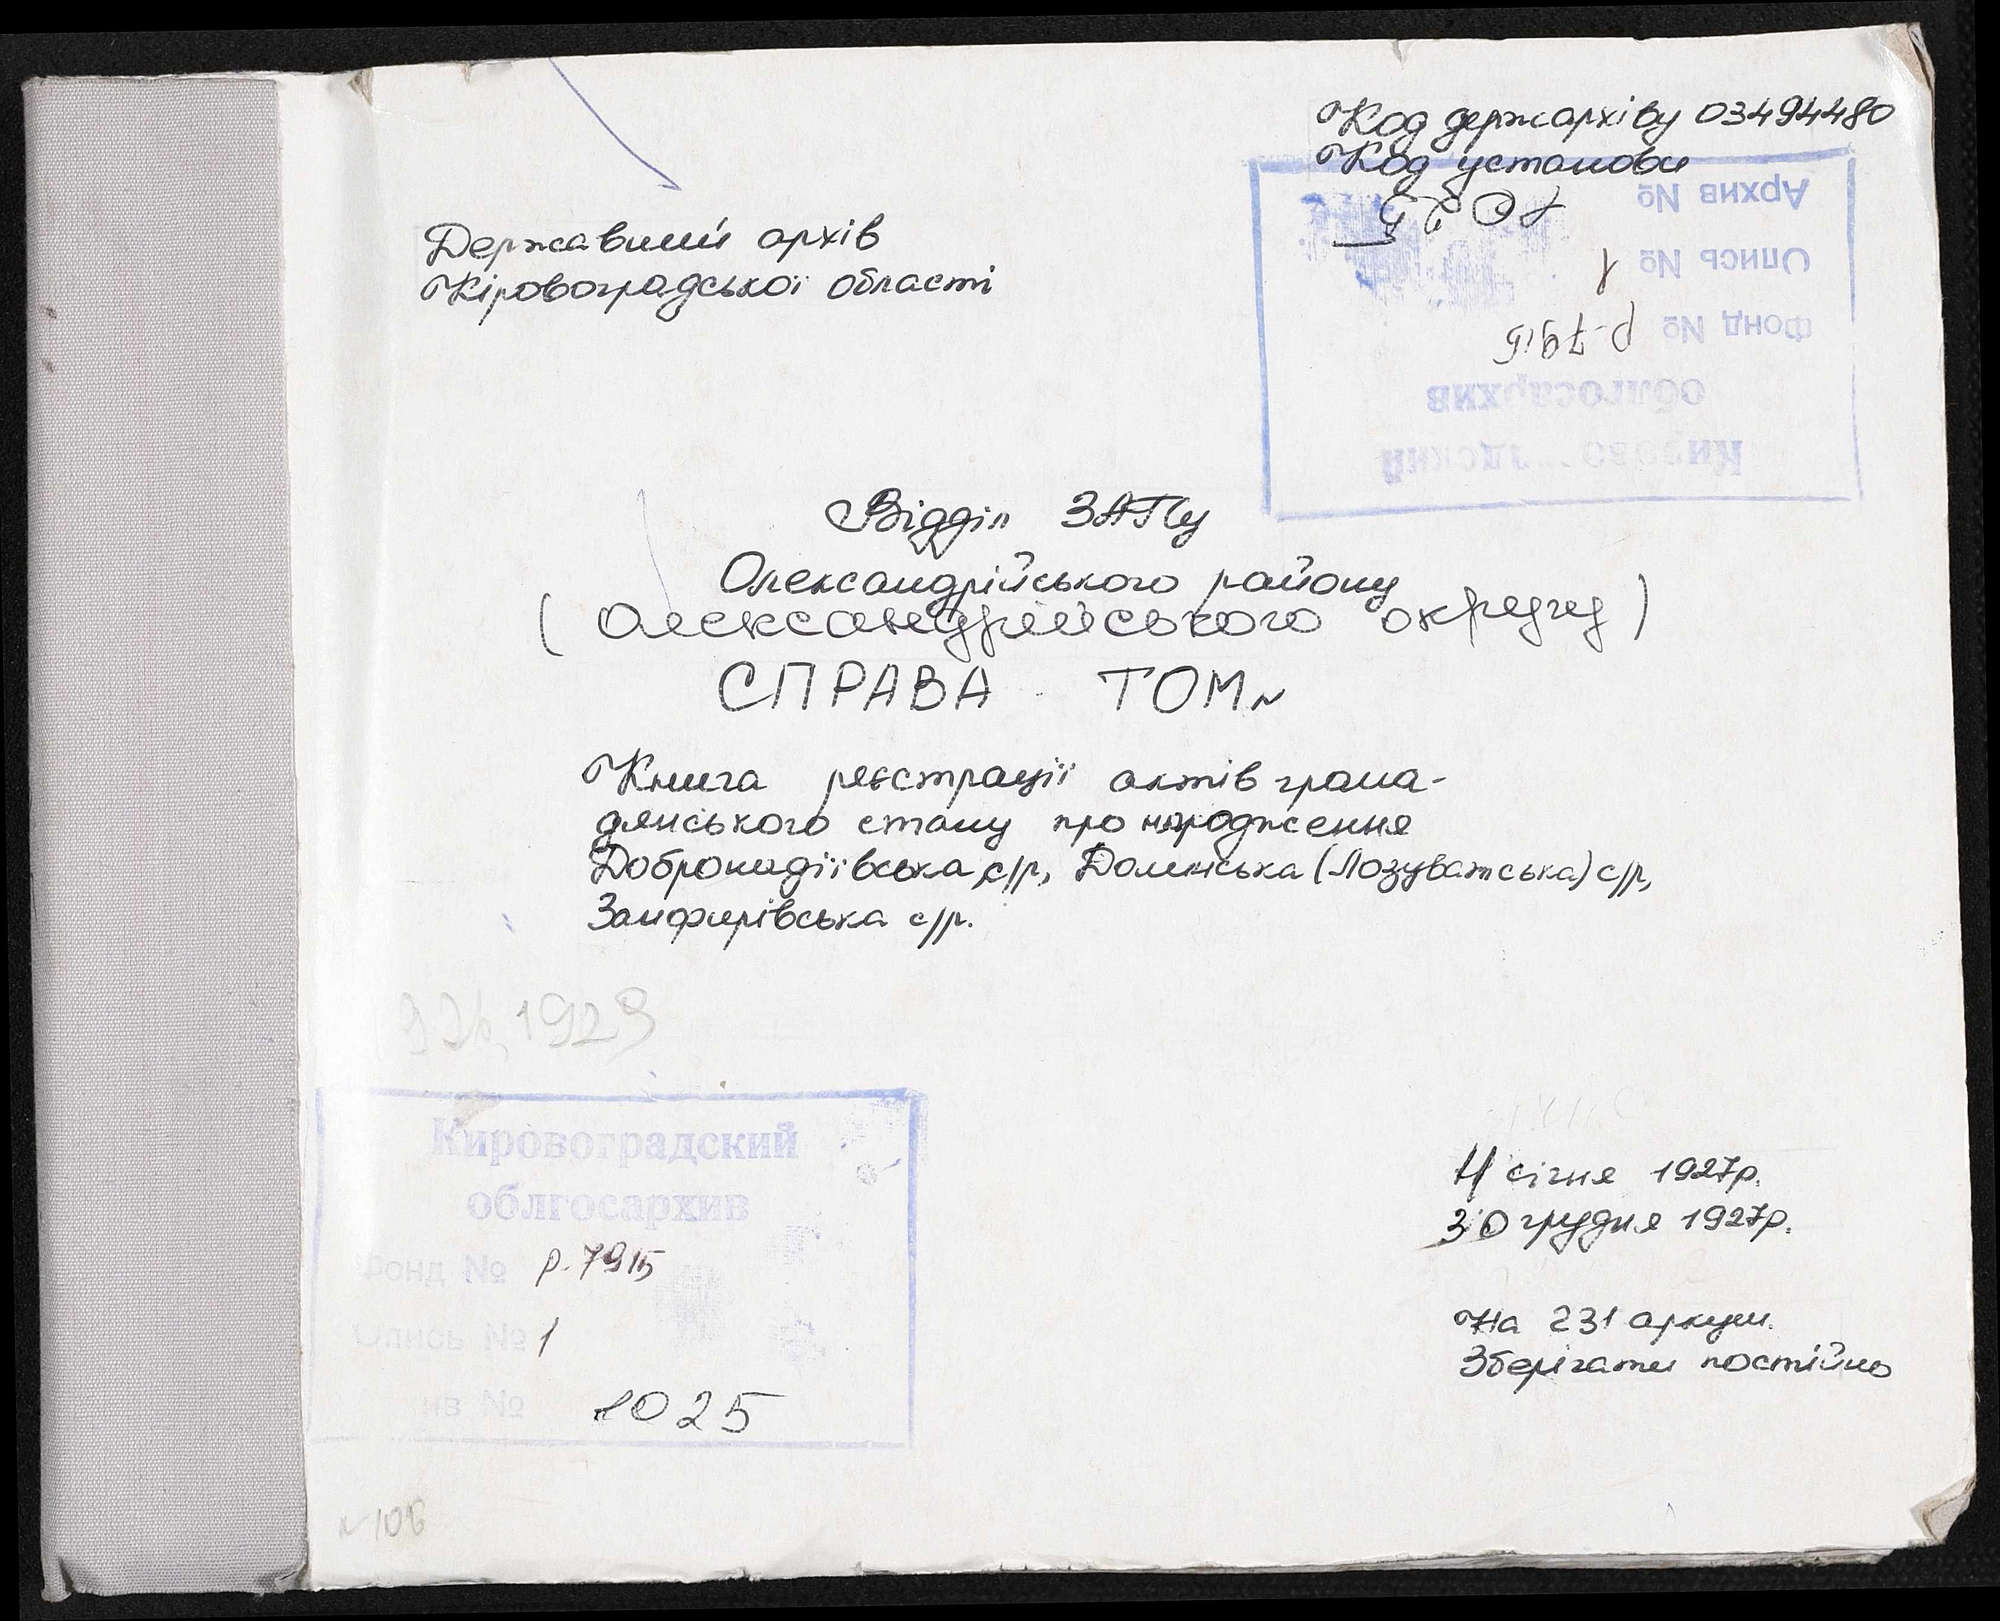 Код держархіву 03494480
Код установи
Архив № 1025
Опись № 1
Фонд № р-7915
облгосархив
Державний архів
Кіровоградської області
Відділ ЗАГСу
Олександрійського району
(Олександрійського округу)
СПРАВА ТОМ №
Книга реєстрації актів грома-
дянського стану про народження
Добронадіївська с/р, Долинська (Лозуватська) с/р,
Занфирівська с/р.
1923
Кировоградский
облгосархив
Фонд № р. 7915
Опись № 1
№ 1025
4 січня 1927р.
30 грудня 1927р.
На 231 аркуш.
Зберігати постійно
№ 106